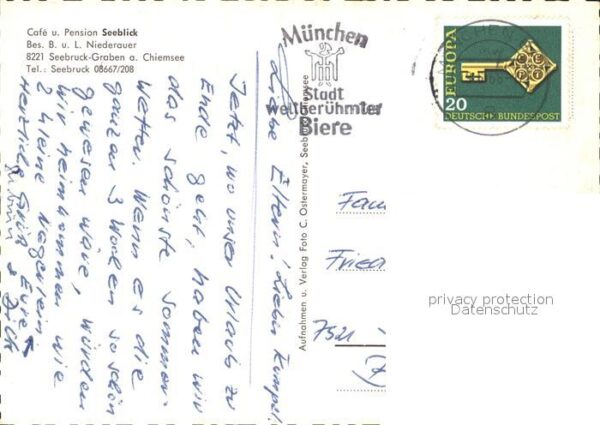 Café u. Pension Seeblick
Bes. B. u. L. Niederauer
8221 Seebruck-Graben a. Chiemsee
Tel.: Seebruck 08667/208
München
Stadt
weltberühmter
Biere
MÜNCHEN
EUROPA
20
DEUTSCHE BUNDESPOST
Liebe Eltern! Lieber Kumpel!
Jetzt, wo unser Urlaub zu
Ende geht, haben wir
das schönste Sommer-
wetter. Wenn es die
ganzen 3 Wochen so schön
gewesen wäre, würden
wir heimkommen wie
2 kleine Negerlein
Herzliche Grüße Eure
& Dick
Aufnahmen u. Verlag Foto C. Ostermayer, Seebruck/Chiemsee
Fam
Fried
7521
privacy protection
Datenschutz